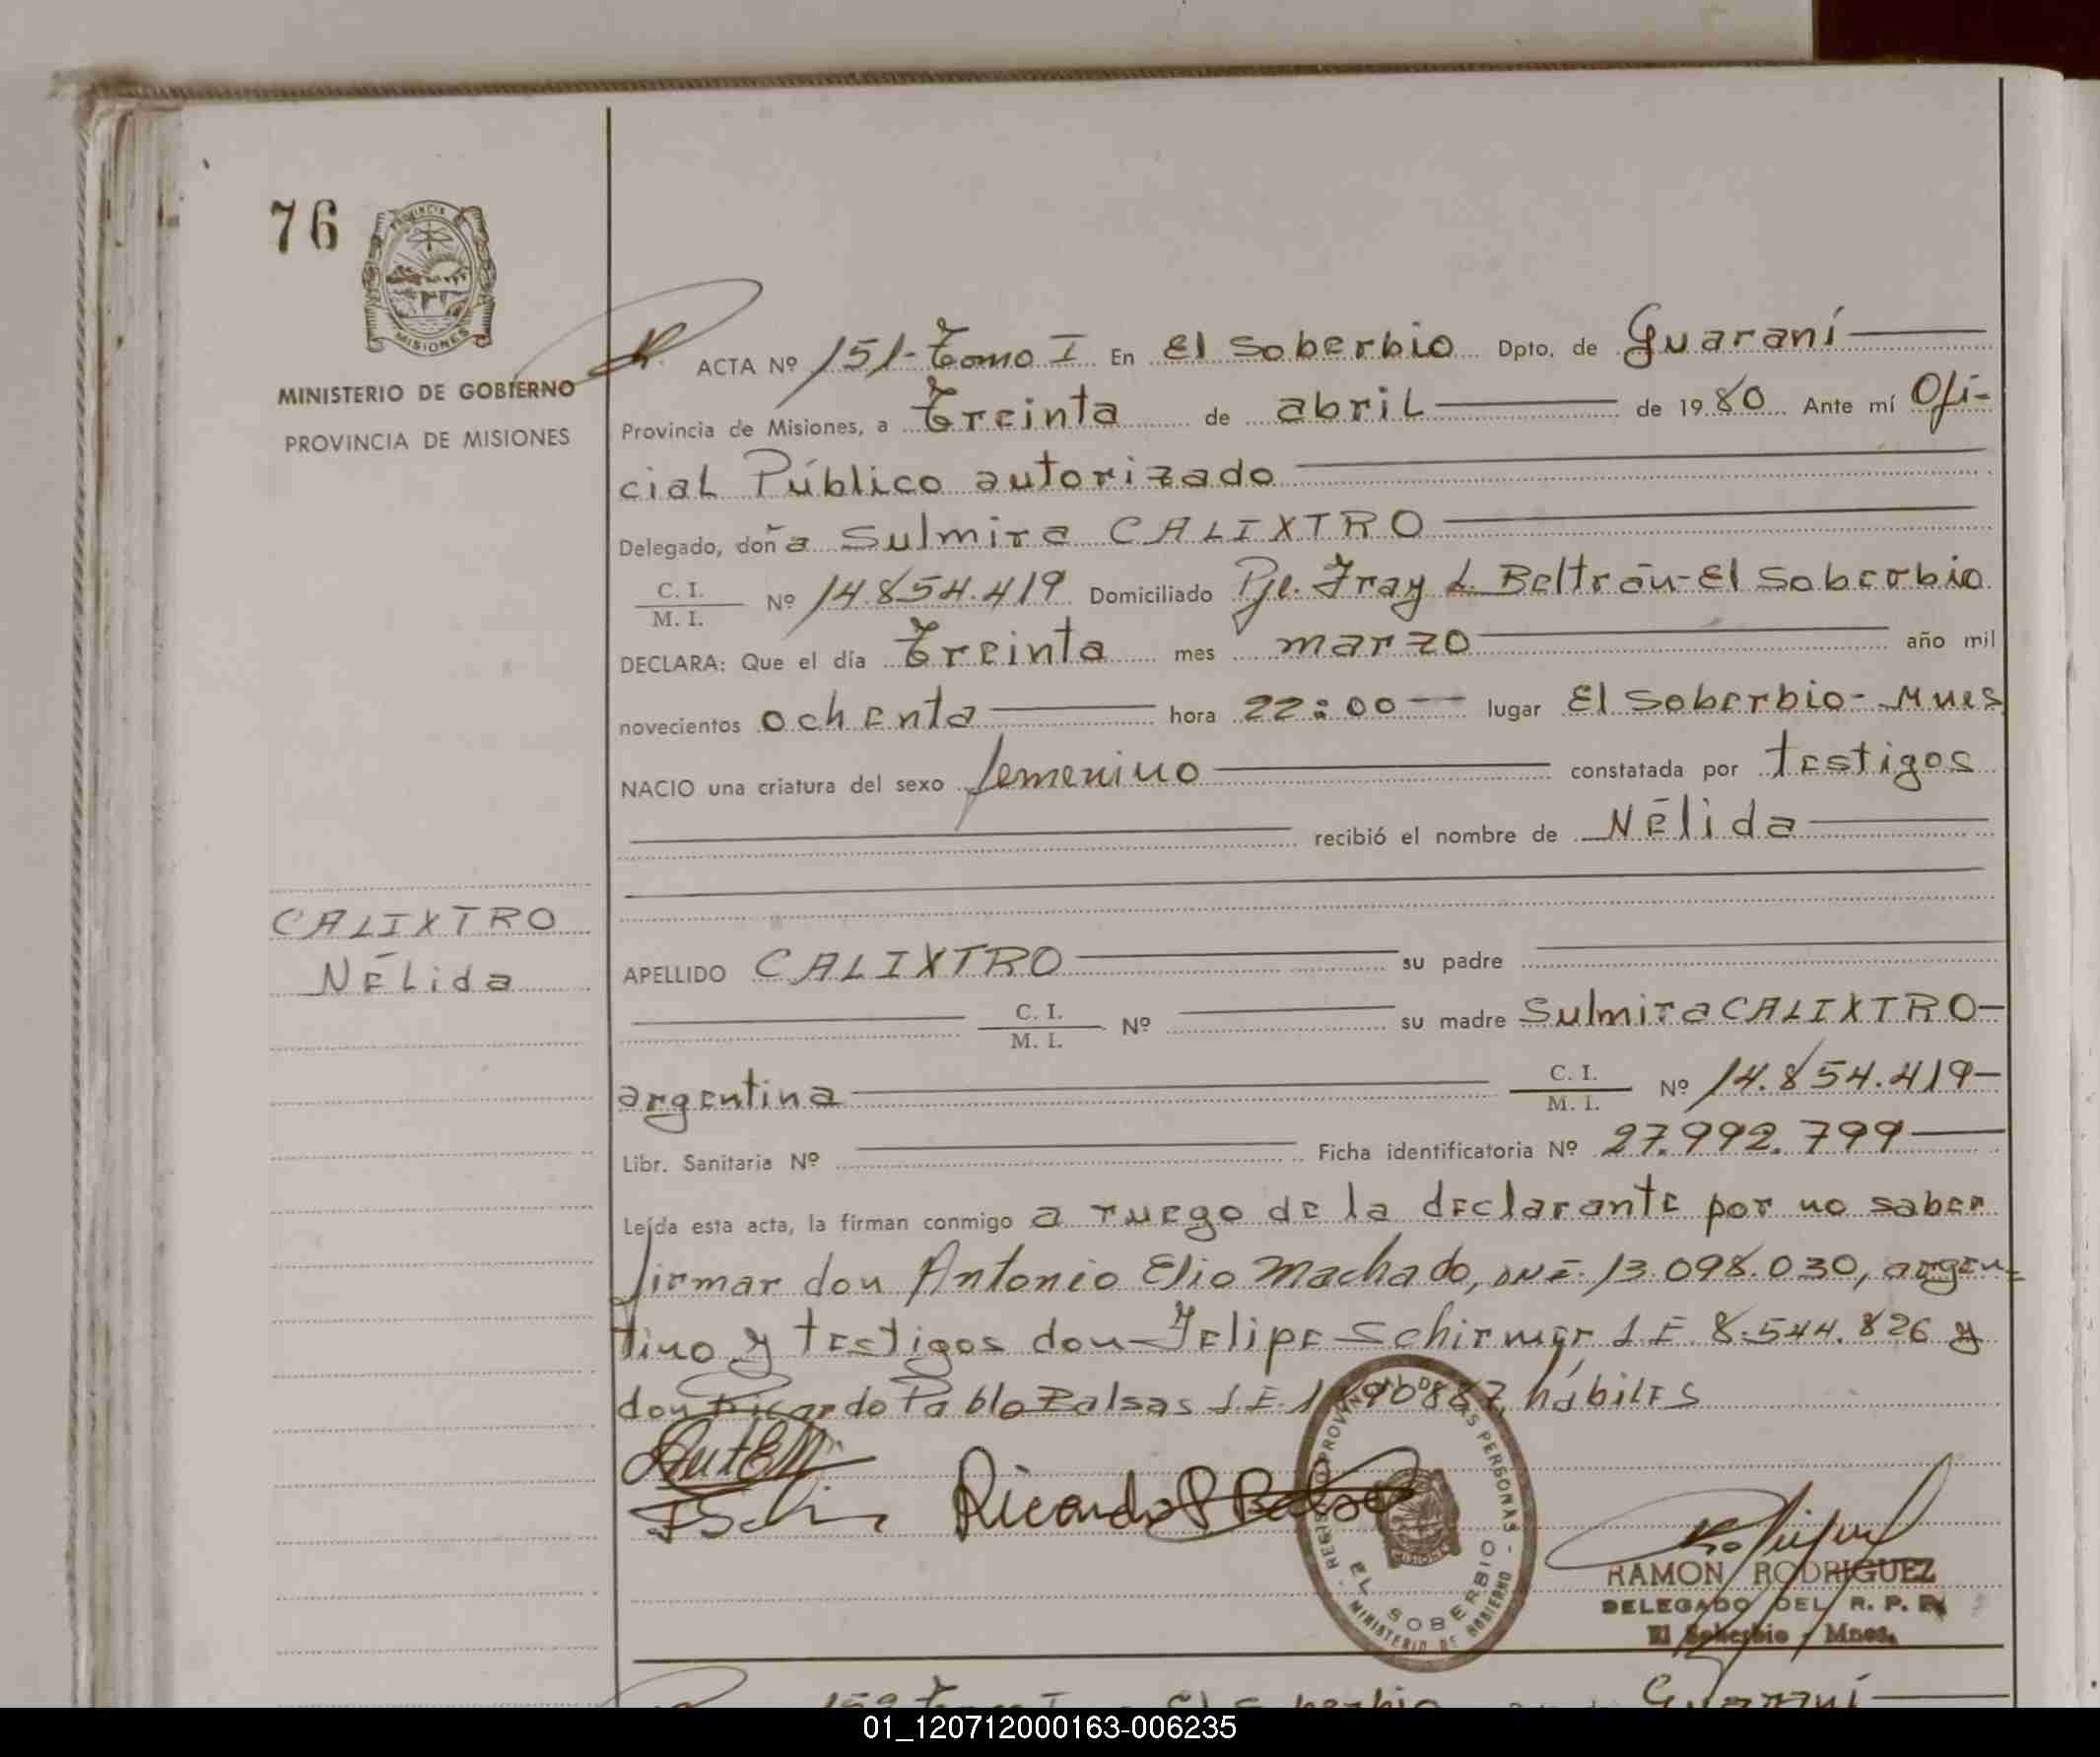 76
PROVINCIA
MISIONES
MINISTERIO DE GOBIERNO
PROVINCIA DE MISIONES
ACTA Nº 151-Tomo I En El Soberbio Dpto. de Guaraní
Provincia de Misiones, a Treinta de abril de 1980 Ante mí Ofi-
cial Público autorizado
Delegado, doña Sulmira CALIXTRO
C. I.
M. I. Nº 14.854.419 Domiciliado Pje. Fray L. Beltrán-El Soberbio
DECLARA: Que el día Treinta mes marzo año mil
novecientos ochenta hora 22:00 lugar El Soberbio-Mnes
NACIO una criatura del sexo femenino constatada por testigos
recibió el nombre de Nélida
CALIXTRO
Nélida
APELLIDO CALIXTRO su padre
C. I.
M. I. Nº su madre Sulmira CALIXTRO-
argentina C. I.
M. I. Nº 14.854.419-
Libr. Sanitaria Nº Ficha identificatoria Nº 27.992.799
Leída esta acta, la firman conmigo a ruego de la declarante por no saber
firmar don Antonio Elio Machado, DNI. 13.098.030, argen-
tino y testigos don Felipe Schirmer L.E. 8.544.826 y
don Ricardo Pablo Balsas L.E. hábiles
Ricardo P Balsas
REGISTRO PROVINCIAL DE LAS PERSONAS
MISIONES
EL SOBERBIO
MINISTERIO DE GOBIERNO
RAMON RODRIGUEZ
DELEGADO DEL R. P. P.
El Soberbio - Mnes.
Guaraní
01_120712000163-006235